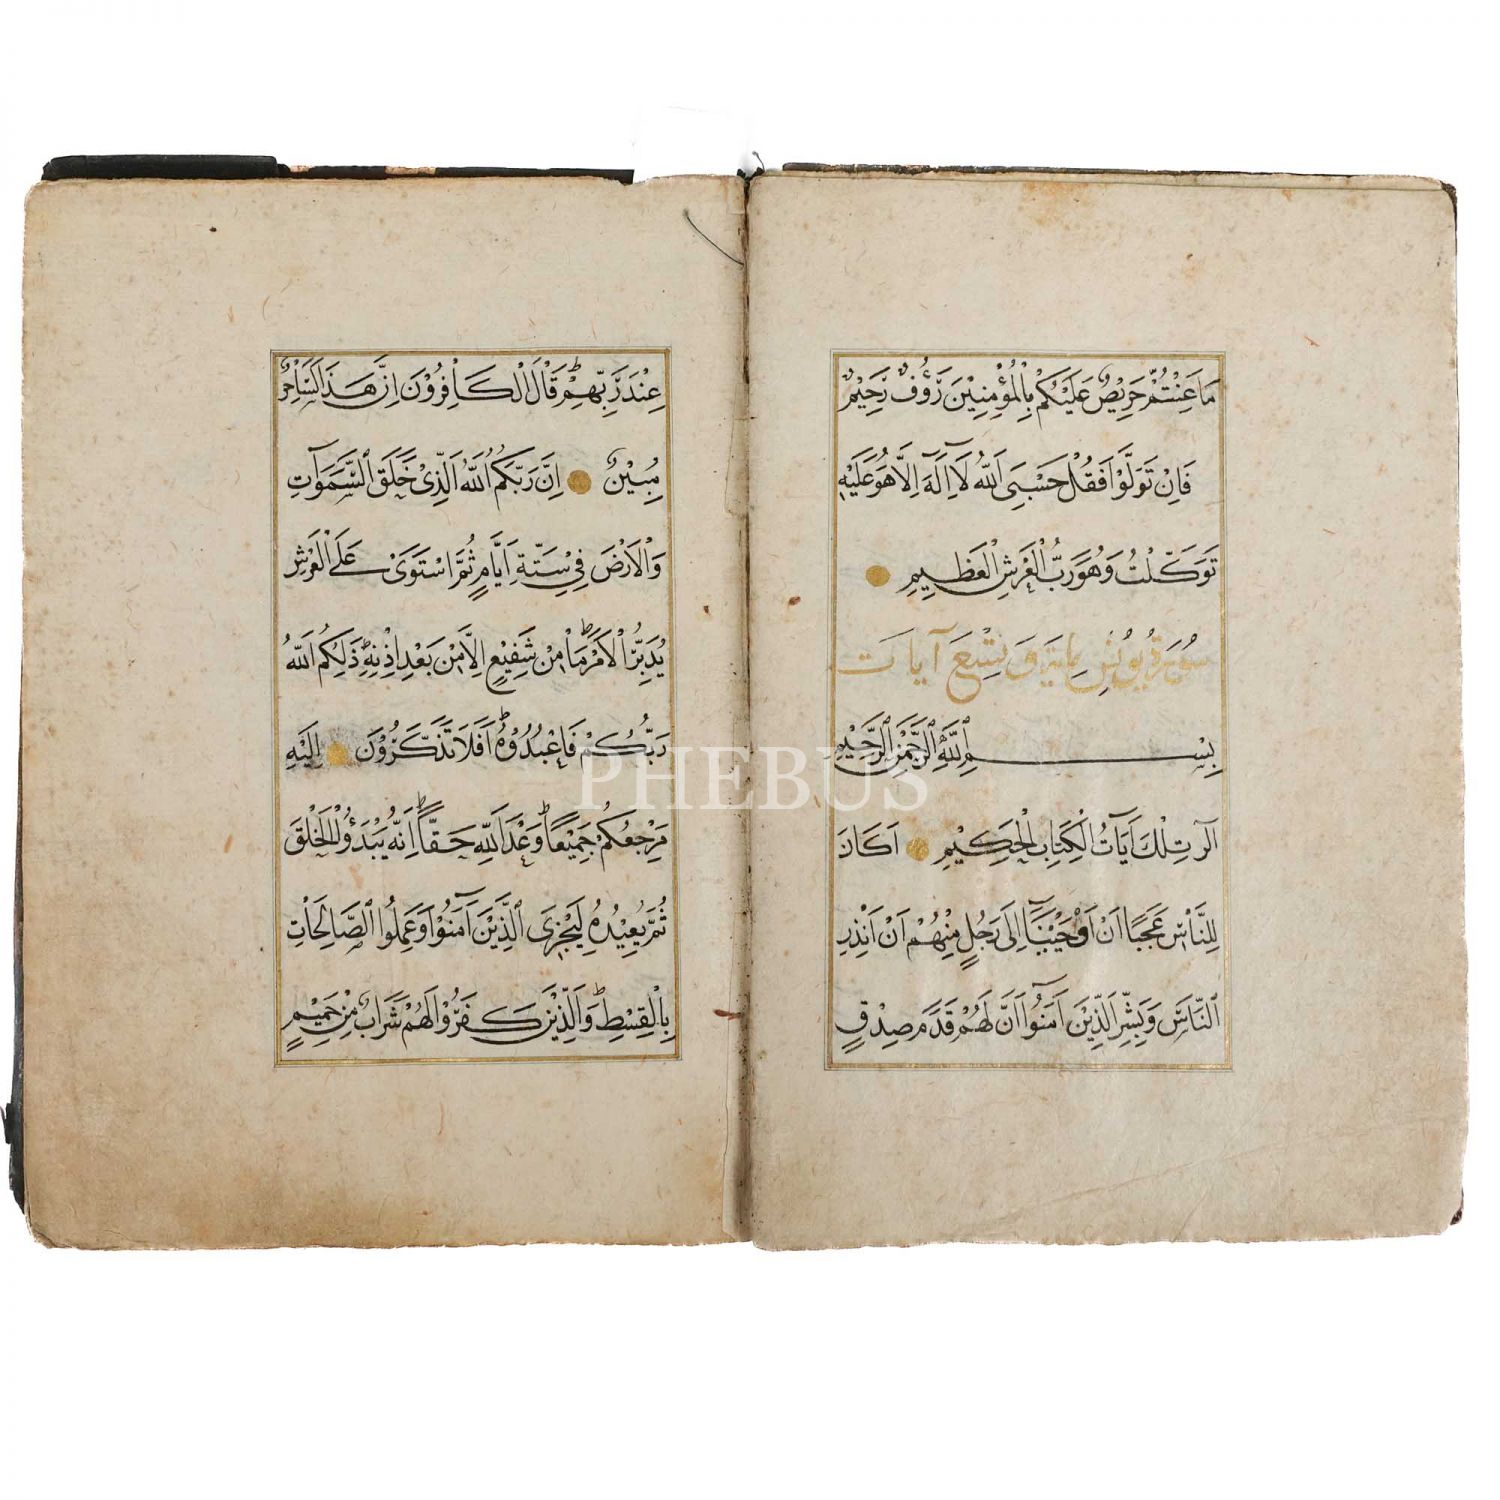 مَا عَنِتُّمْ حَرِيصٌ عَلَيْكُمْ بِالْمُؤْمِنِينَ رَؤُفٌ رَحِيمٌ
فَاِنْ تَوَلَّوْا فَقُلْ حَسْبِىَ اللّٰهُ لَآ اِلٰهَ اِلَّا هُوَ عَلَيْهِ
تَوَكَّلْتُ وَهُوَ رَبُّ الْعَرْشِ الْعَظِيمِ
سُورَة يُونُس مِاية وَتِسْعَ آيَات
بِسْمِ اللّٰهِ الرَّحْمٰنِ الرَّحِيمِ
الٓر تِلْكَ اٰيَاتُ الْكِتَابِ الْحَكِيمِ اَكَانَ
لِلنَّاسِ عَجَبًا اَنْ اَوْحَيْنَآ اِلٰى رَجُلٍ مِنْهُمْ اَنْ اَنْذِرِ
النَّاسَ وَبَشِّرِ الَّذِينَ اٰمَنُوٓا اَنَّ لَهُمْ قَدَمَ صِدْقٍ
عِنْدَ رَبِّهِمْ ط قَالَ الْكَافِرُونَ اِنَّ هَذَا لَسَاحِرٌ
مُبِيْنٌ اِنَّ رَبَّكُمُ اللّٰهُ الَّذِىْ خَلَقَ السَّمٰوَاتِ
وَالْاَرْضَ فِى سِتَّةِ اَيَّامٍ ثُمَّ اسْتَوَىٰ عَلَى الْعَرْشِ
يُدَبِّرُ الْاَمْرَ ط مَا مِنْ شَفِيعٍ اِلَّا مِنْ بَعْدِ اِذْنِهِ ط ذٰلِكُمُ اللّٰهُ
رَبُّكُمْ فَاعْبُدُوْهُ ط اَفَلَا تَذَكَّرُوْنَ اِلَيْهِ
مَرْجِعُكُمْ جَمِيْعًا ط وَعْدَ اللّٰهِ حَقًّا ط اِنَّهُ يَبْدَؤُا الْخَلْقَ
ثُمَّ يُعِيْدُهُ لِيَجْزِىَ الَّذِيْنَ اٰمَنُوْا وَعَمِلُوا الصَّالِحَاتِ
بِالْقِسْطِ ط وَالَّذِيْنَ كَفَرُوْا لَهُمْ شَرَابٌ مِنْ حَمِيْمٍ
PHEBUS